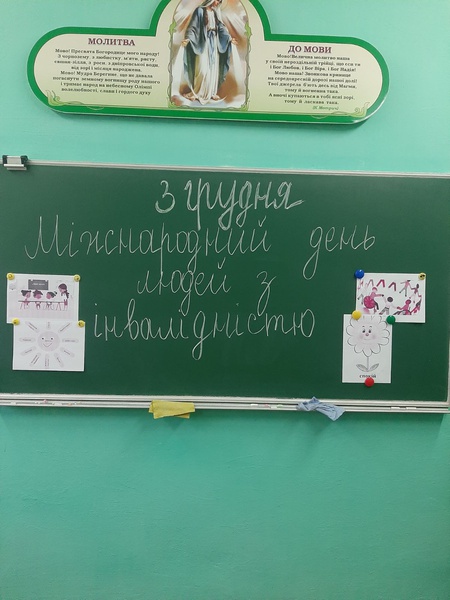 МОЛИТВА
Мово! Пресвята Богородице мого народу!
З чорнозему, з любистку, м'яти, рясту
євшан-зілля, з роси, з дніпровської води,
від зорі і місяця народжена.
Мово! Мудра Берегине, що не давала
погаснути земному вогнищу роду нашого
і тримає народ на небесному Олімпі
волелюбності, слави і гордого духу
ДО МОВИ
Мово!Велична молитво наша
у своїй нероздільній трійці, що єси ти
і Бог Любов, і Бог Віра, і Бог Надія!
Мово наша! криниця
на середхресній дорозі нашої долі!
Твої джерела б'ють десь від Магми,
тому й вогненна така.
А вночі купаються в тобі ясні зорі,
тому й ласкава така.
3 грудня
Міжнародний день
людей з
інвалідністю